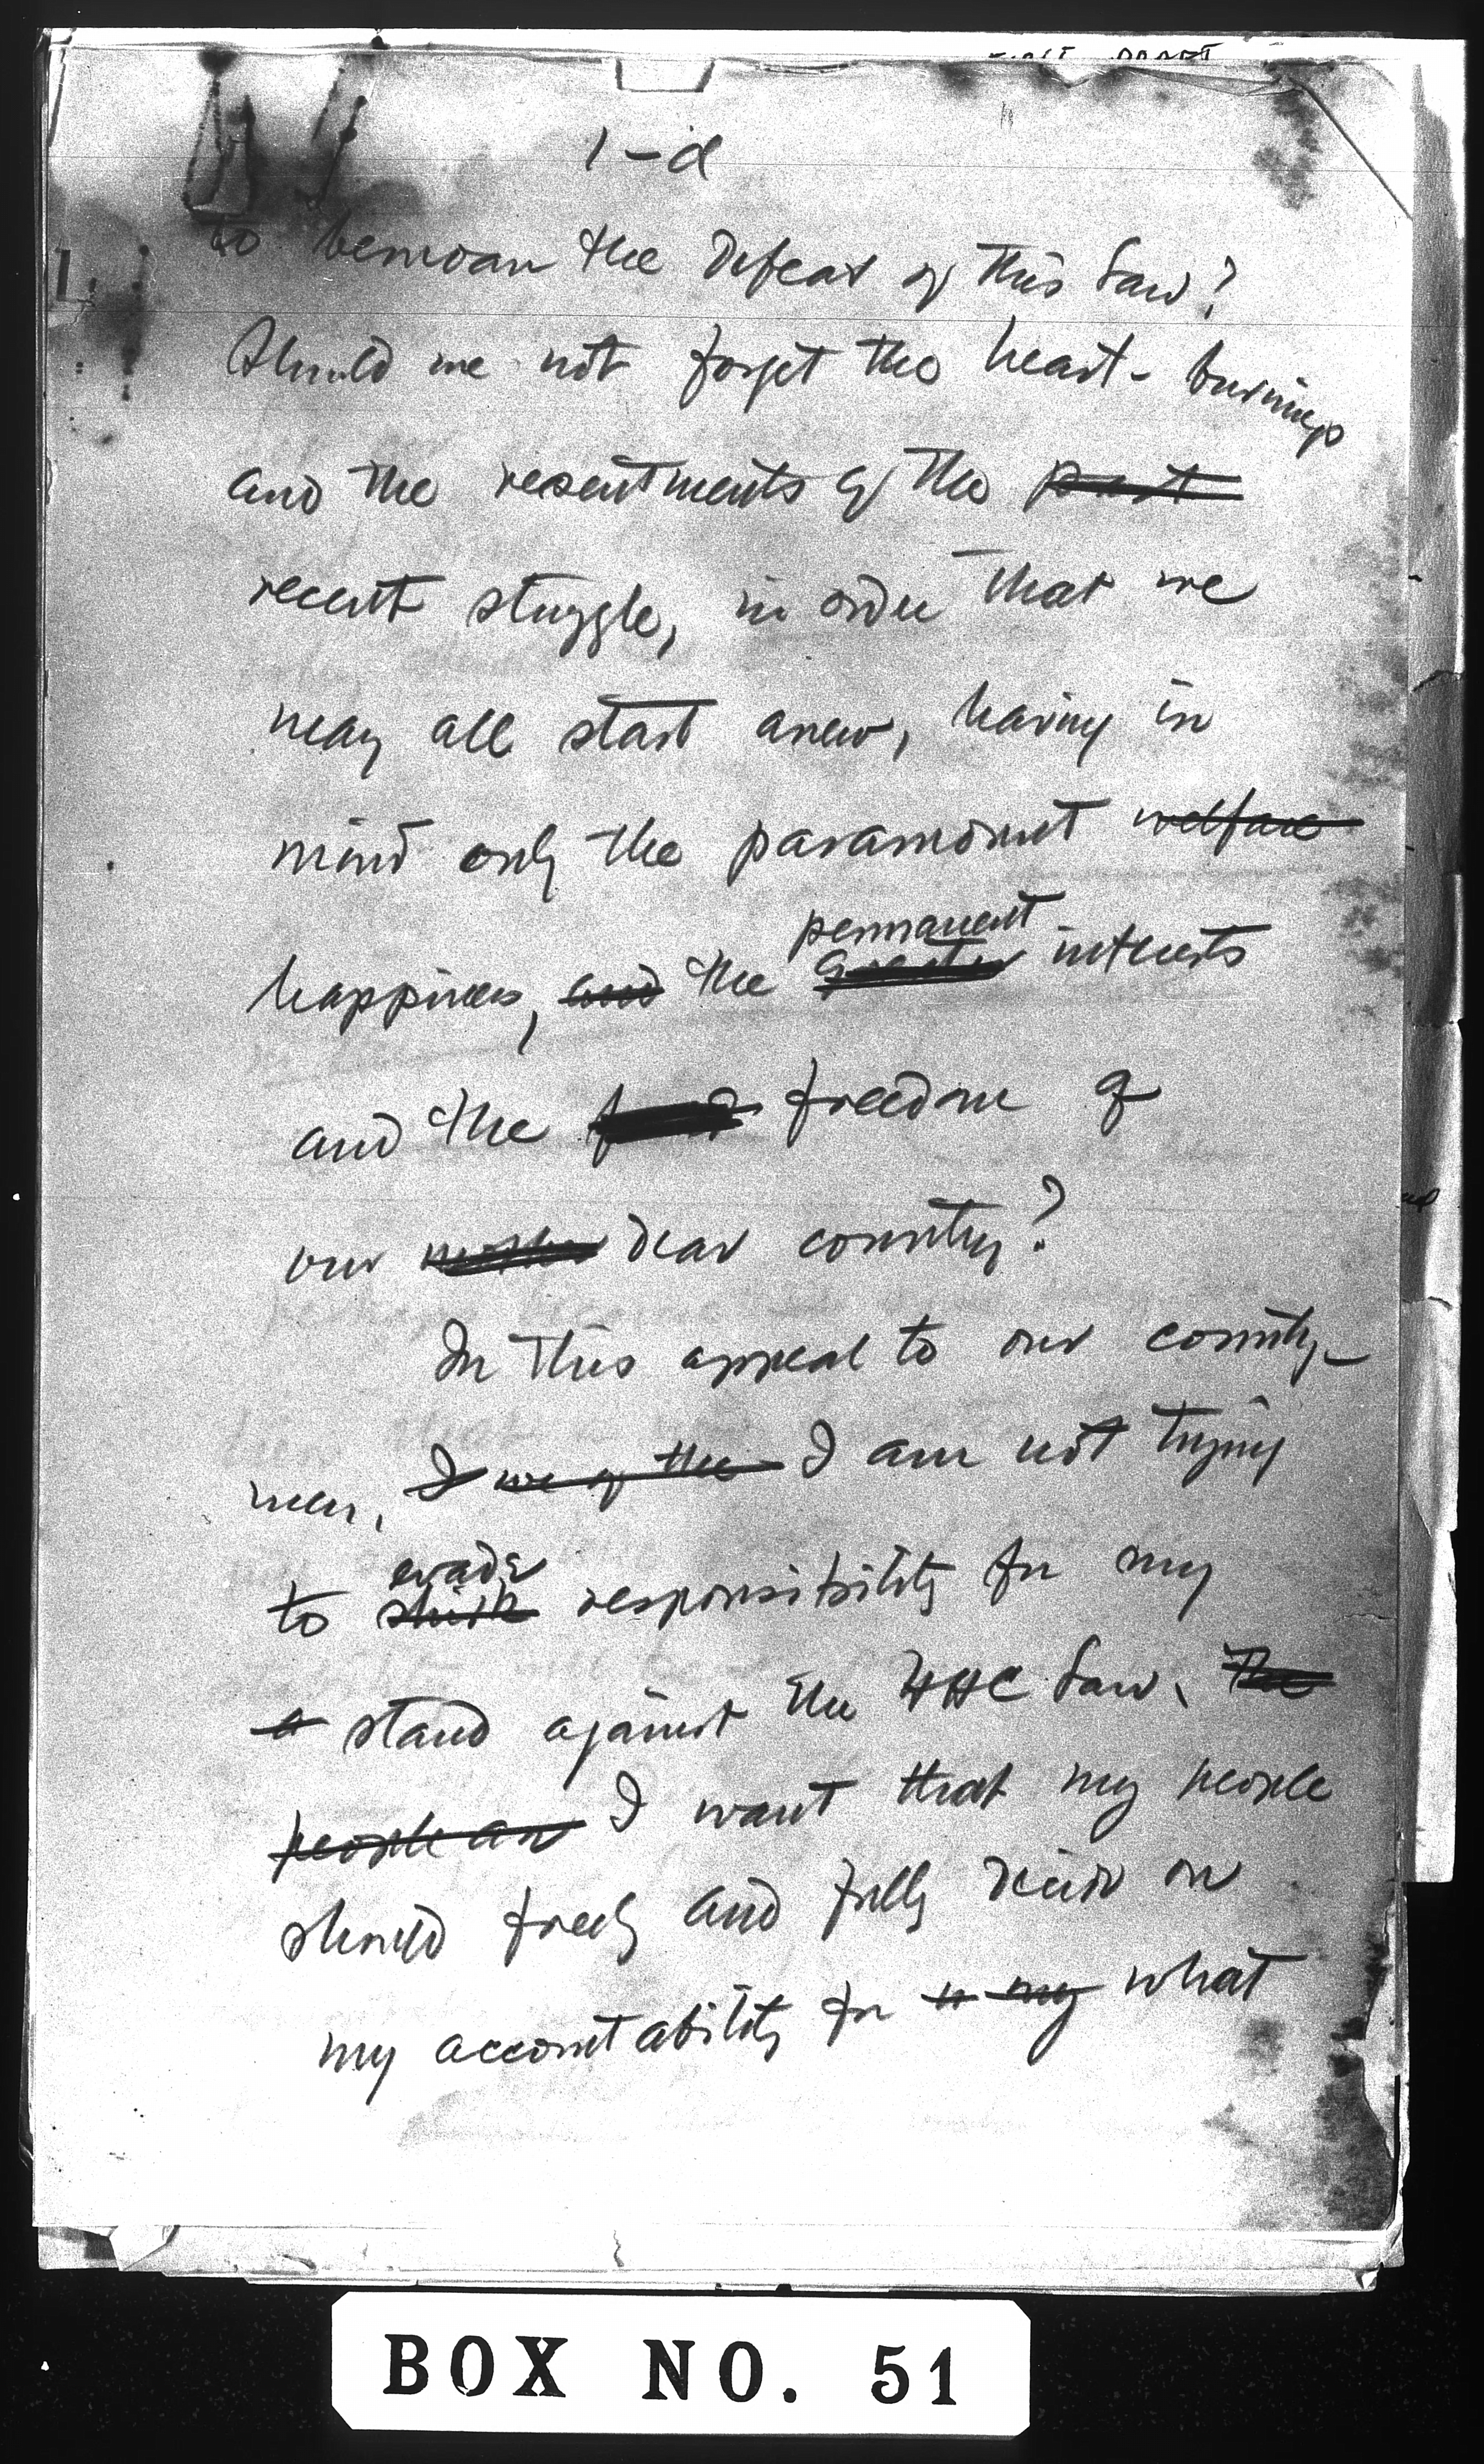 FIRST DRAFT
1-d
to bemoan the defeat of this law?
Should we not forget the heart-burnings
and the resentments of the past
recent stuggle, in order that we
may all start anew, having in
mind only the paramount welfare
permanent
happiness, and the greater interests
and the freedom of
our mother dear country?
In this appeal to our country-
men, I we of the I am not trying
evade
to shirk responsibility for my
a stand against the HHC law. The
people are I want that my people
should freely and fully decide on
my accountability for my what
BOX NO. 51